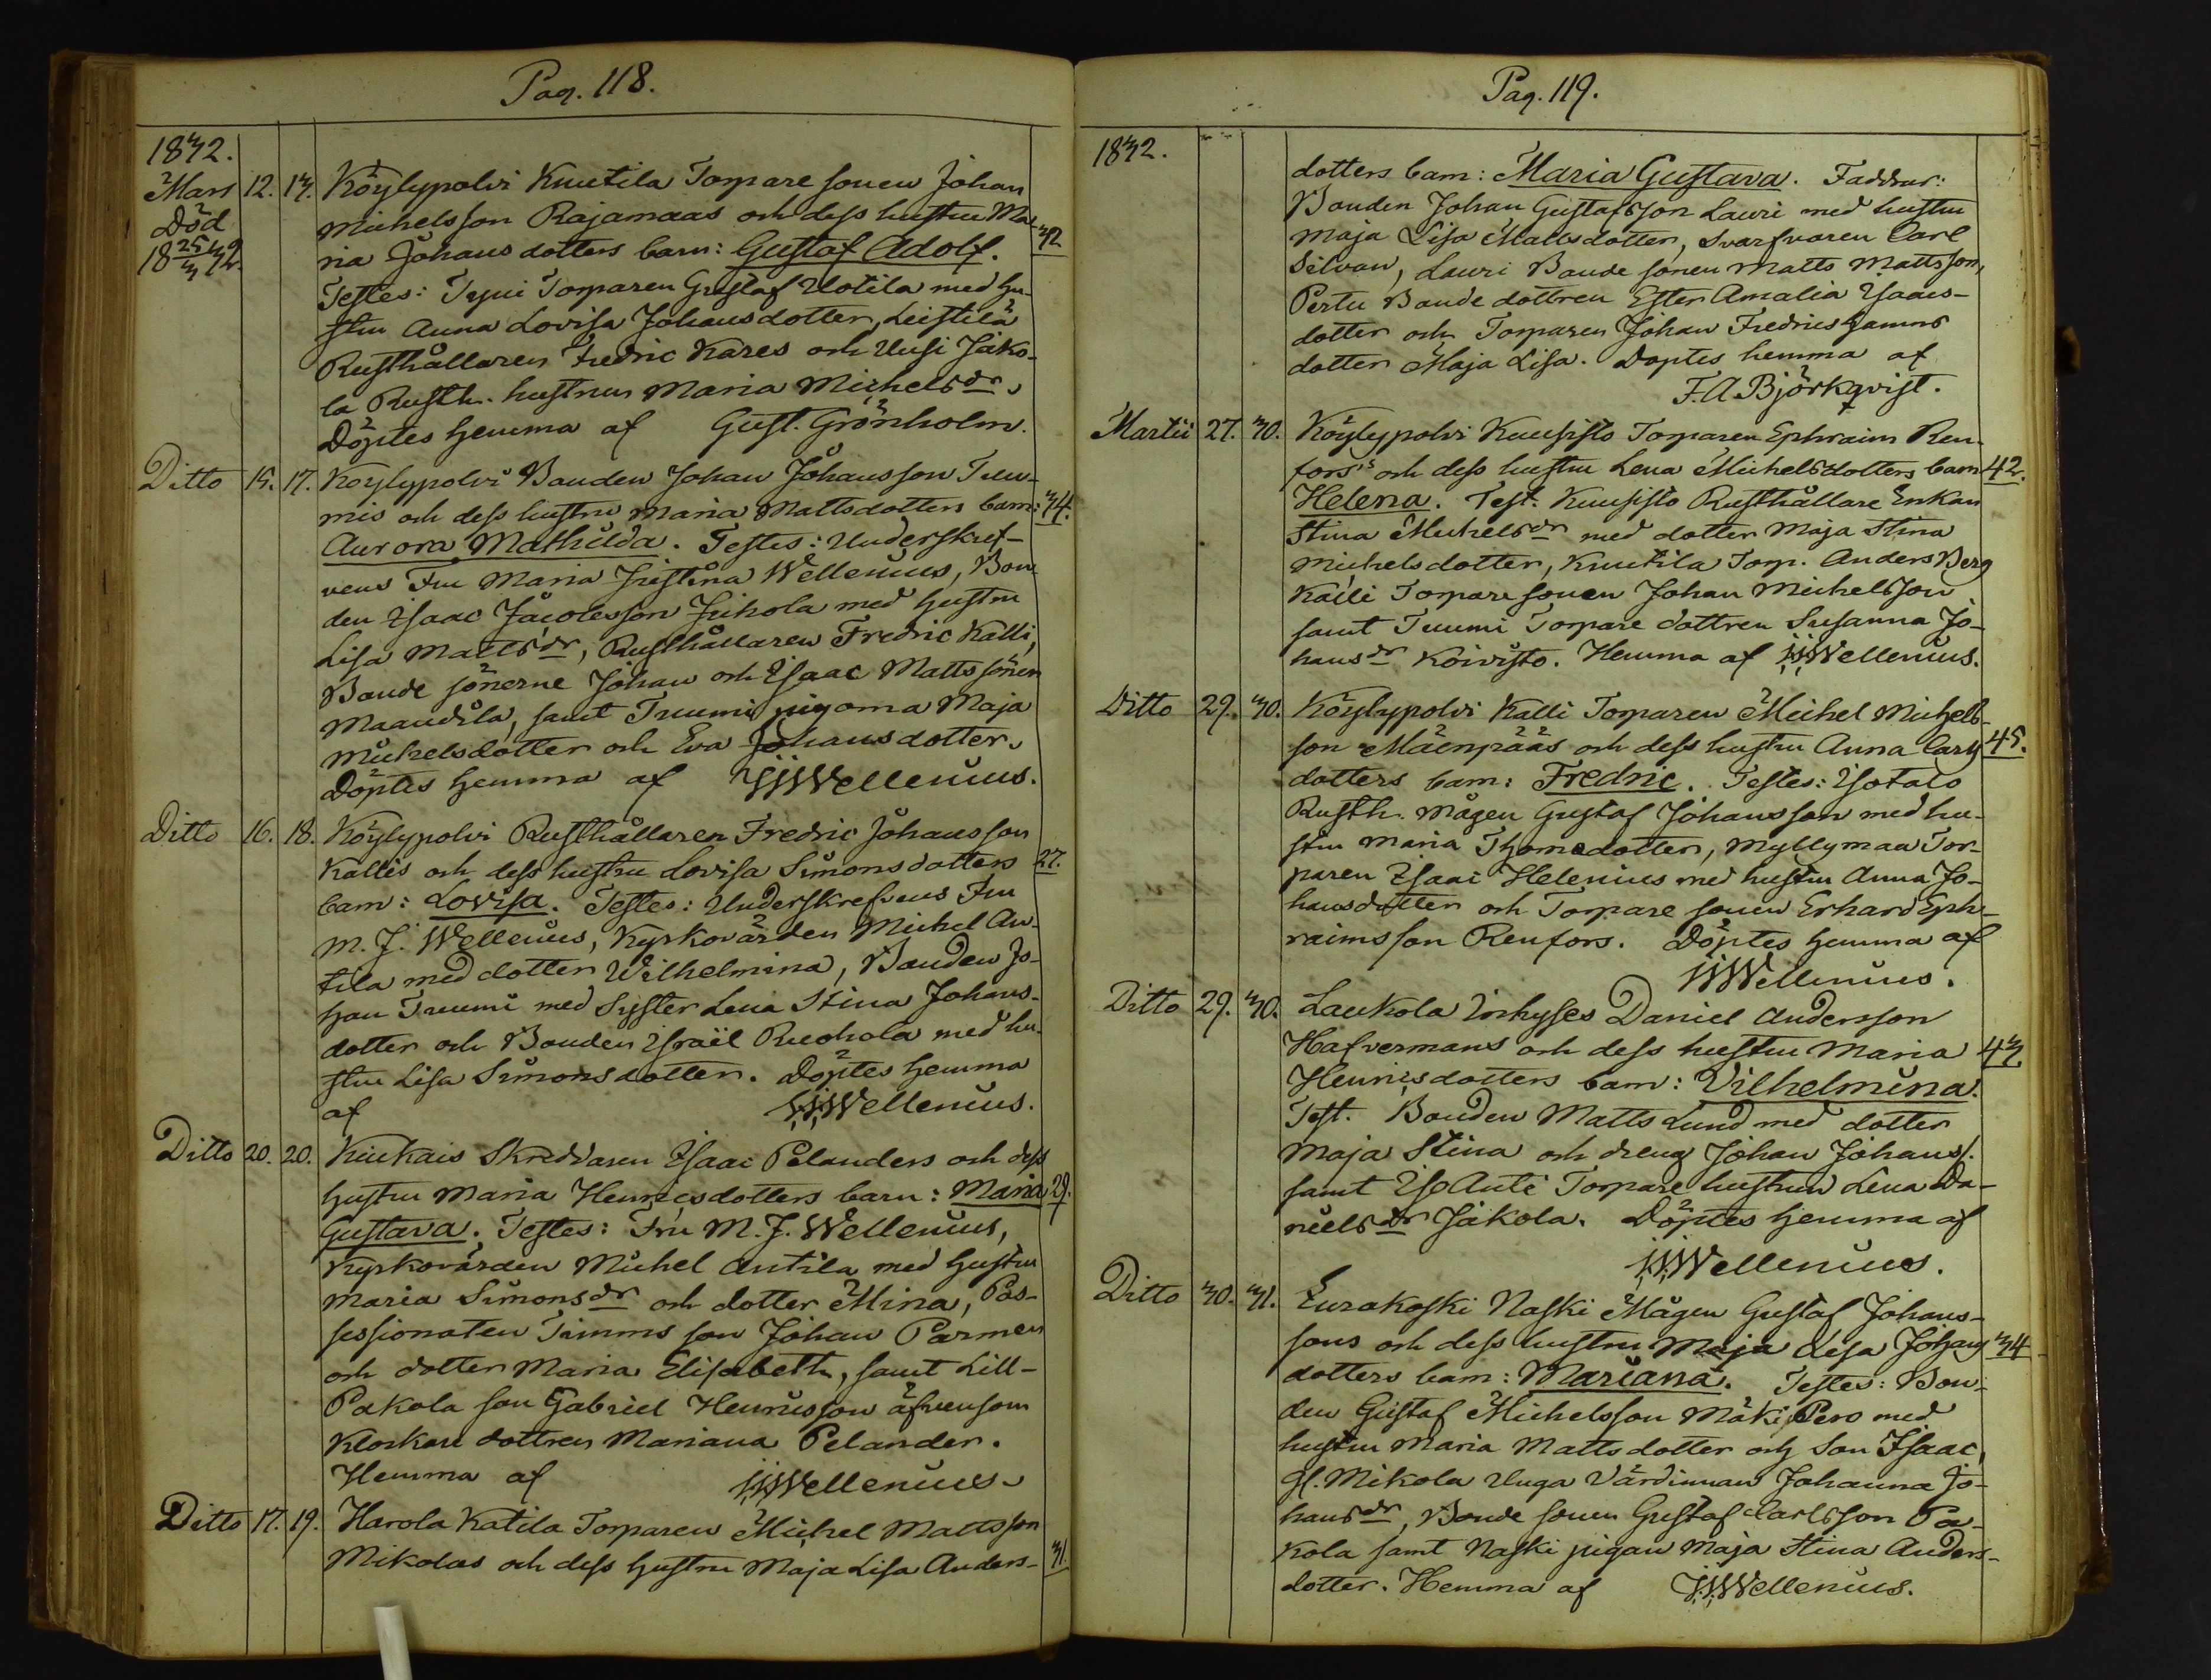 Pag. 118.
1832.
Mars 12. 13. Köylypolvi Knutila Torpare sonen Johan
Död
18 25/3 32.
Michelsson Rajamaas och dess hustru Ma- 32
ria Johansdotters barn: Gustaf Adolf.
Testes: Tyni Torparen Gustaf Uotila med hu-
stru Anna Lovisa Johansdotter, Leistilä
Rusthållaren Fredric Kares och Uusi Jako-
la Rusth. hustrun Maria Michelsdr.
Döptes hemma af Gust. Grönholm.
Ditto 15. 17. Köylypolvi Bonden Johan Johansson Tuu-
mis och dess hustru Maria Mattsdotters barn: 34.
Aurora Mathilda. Testes: Underskref-
vens Fru Maria Fristina Wellenius, Bon-
den Isaac Jacobsson Juhola med hustru
Lisa Mattsdr, Rusthållaren Fredric Kalli,
Bonde sönerne Johan och Isaac Mattssöner
Maandila, samt Tuumi pigorna Maja
Michelsdotter och Eva Johansdotter.
Döptes hemma af JJWellenius.
Ditto 16. 18. Köylypolvi Rusthållaren Fredric Johansson
Kallis och dess hustru Lovisa Simonsdotters 27.
barn: Lovisa. Testes: Underskrefvens Fru
M. J. Wellenius, Kyrkovärden Michel An-
tila med dotter Wilhelmina, Bonden Jo-
han Tuumi med Syster Lena Stina Johans-
dotter och Bonden Israël Ruohola med hu-
stru Lisa Simonsdotter. Döptes hemma
af JJWellenius.
Ditto 20. 20. Kiukais Skreddaren Isaac Pelanders och dess
hustru Maria Henricsdotters barn: Maria 29.
Gustava. Testes: Fru M. J. Wellenius,
Kyrkovärden Michel Antila med hustru
Maria Simonsdr och dotter Mina, Pos-
sessionaten Timms son Johan Parmen
och dotter Maria Elisabeth, samt Lill-
Pakola son Gabriel Henricsson äfvensom
Klockare dottren Mariana Pelander.
Hemma af JJWellenius.
Ditto 17. 19. Harola Katila Torparen Michel Mattsson
Mikolas och dess hustru Maja Lisa Anders- 31.
Pag. 119.
1832.
dotters barn: Maria Gustava. Faddrar:
Bonden Johan Gustafsson Lauri med hustru
Maja Lisa Mattsdotter, Svarfvaren Carl
Silvan, Lauri Bonde sonen Matts Mattsson,
Pertu Bonde dottren Ester Amalia Isaacs-
dotter och Torparen Johan Fredrics hamns
dotter Maja Lisa. Doptes hemma af
F. A Björkqvist.
Martii 27. 30. Köylypolvi Kuusisto Torparen Ephraim Ren-
fors's och dess hustru Lena Michelsdotters barn 42.
Helena. Test. Kuusisto Rusthållare Enkan
Stina Michelsdr med dotter Maja Stina
Michelsdotter, Knutila Torp. Anders Berg
Källi Torpare sonen Johan Michelsson
samt Tuumi Torpare dottren Susanna Jo-
hansdr Koivisto. Hemma af JJWellenius.
Ditto 29. 30. Köylypolvi Kalli Torparen Michel Michels-
son Mäenpääs och dess hustru Anna Carls 45.
dotters barn: Fredric. Testes: Isotalo
Rusth. Mågen Gustaf Johansson med hu-
stru Maria Thomedotter, Myllymaa Tor-
paren Isaac Helenius med hustru Anna Jo-
hansdotter och Torpare sonen Erhard Eph-
raimsson Renfors. Döptes hemma af
JJWellenius.
Ditto 29. 30. Laukola Inhyses Daniel Andersson
Hafvermans och dess hustru Maria 43.
Henricsdotters barn: Vilhelmina.
Test. Bonden Matts Lund med dotter
Maja Stina och dreng Johan Johanss.
samt Iso Anti Torpare hustrun Lena Da-
nielsdr Jakola. Döptes hemma af
JJWellenius.
Ditto 30. 31. Eurakoski Naski Mågen Gustaf Johans-
sons och dess hustru Maja Lisa Johans 34
dotters barn: Mariana. Testes: Bon-
den Gustaf Michelsson Mäki Pero med
hustru Maria Mattsdotter och Son Isaac,
Gl. Mikola Unga Värdinnan Johanna Jo-
hansdr, Bonde sonen Gustaf Carlsson Pa-
kola samt Naski pigan Maja Stina Anders-
dotter. Hemma af JJWellenius.